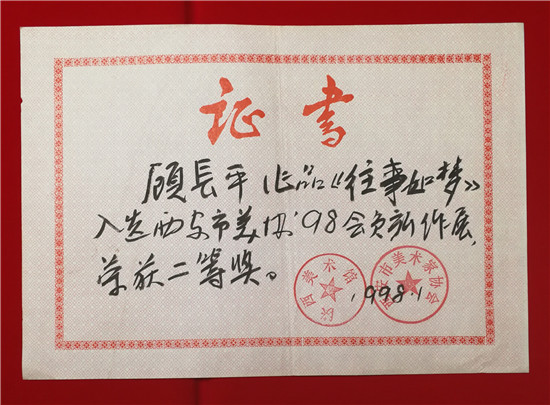 证书
顾長平作品《往事如梦》
入选西安市美协'98会员新作展,
荣获二等奖。
西美术馆
西安市美术家协会
1998.1